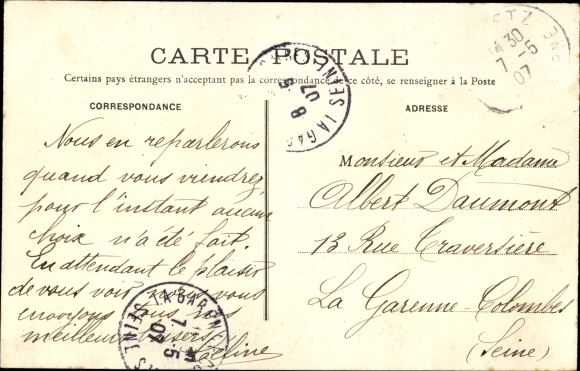 CARTE POSTALE
Certains pays étrangers n'acceptant pas la correspondance de ce côté, se renseigner à la Poste
CORRESPONDANCE
Nous en reparlerons
quand vous viendrez,
pour l'instant aucun
choix n'a été fait.
En attendant le plaisir
de vous voir nous vous
envoyons tous nos
meilleurs baisers
ADRESSE
Monsieur et Madame
Albert Daumont
13 Rue Traversière
La Garenne-Colombes
(Seine)
30
7 - 5
07
8 - 5
07
LA GAR
SEINE
7 - 5
07